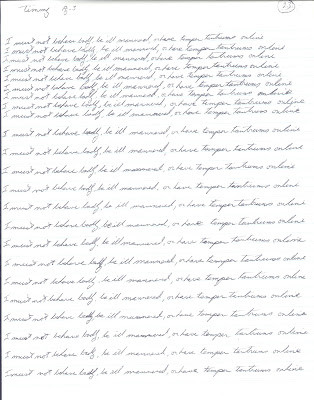 Timmy
I must not behave badly, be ill mannered, or have temper tantrums online
I must not behave badly, be ill mannered, or have temper tantrums online
I must not behave badly, be ill mannered, or have temper tantrums online
I must not behave badly, be ill mannered, or have temper tantrums online
I must not behave badly, be ill mannered, or have temper tantrums online
I must not behave badly, be ill mannered, or have temper tantrums online
I must not behave badly, be ill mannered, or have temper tantrums online
I must not behave badly, be ill mannered, or have temper tantrums online
I must not behave badly, be ill mannered, or have temper tantrums online
I must not behave badly, be ill mannered, or have temper tantrums online
I must not behave badly, be ill mannered, or have temper tantrums online
I must not behave badly, be ill mannered, or have temper tantrums online
I must not behave badly, be ill mannered, or have temper tantrums online
I must not behave badly, be ill mannered, or have temper tantrums online
I must not behave badly, be ill mannered, or have temper tantrums online
I must not behave badly, be ill mannered, or have temper tantrums online
I must not behave badly, be ill mannered, or have temper tantrums online
I must not behave badly, be ill mannered, or have temper tantrums online
I must not behave badly, be ill mannered, or have temper tantrums online
I must not behave badly, be ill mannered, or have temper tantrums online
I must not behave badly, be ill mannered, or have temper tantrums online
I must not behave badly, be ill mannered, or have temper tantrums online
I must not behave badly, be ill mannered, or have temper tantrums online